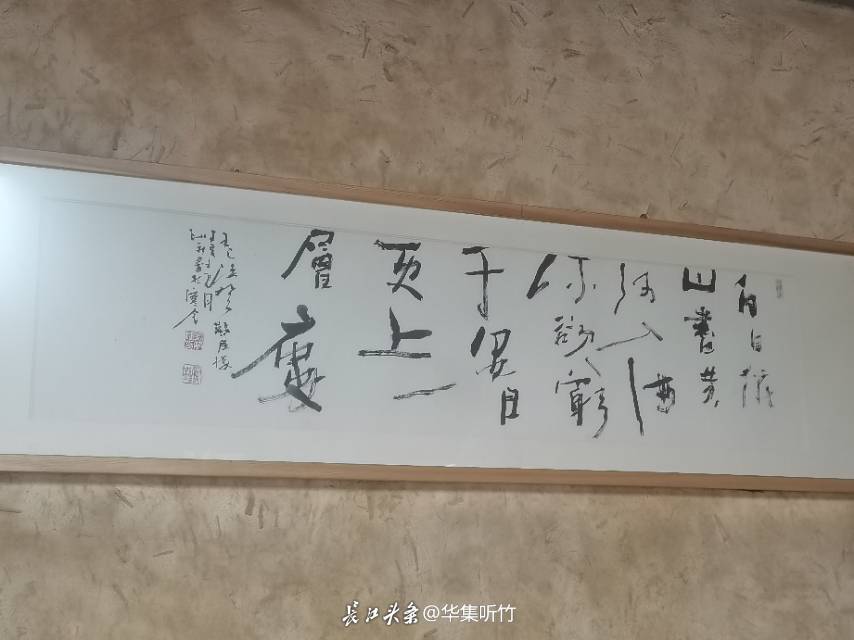 白日依
山盡黃
河入海
流欲窮
千里目
更上一
層樓
长江头条@华集听竹